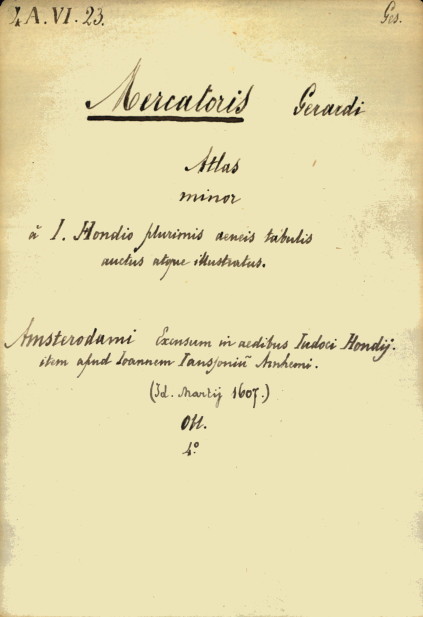 4 A. VI. 23. Ges.
Mercatoris Gerardi
Atlas
minor
à I. Hondio plurimis aeneis tabulis
auctus atque illustratus.
Amsterodami Excusum in aedibus Iudoci Hondij.
item apud Ioannem Iansoniū Arnhemi.
(Id. Martij 1607.)
Ott.
4°